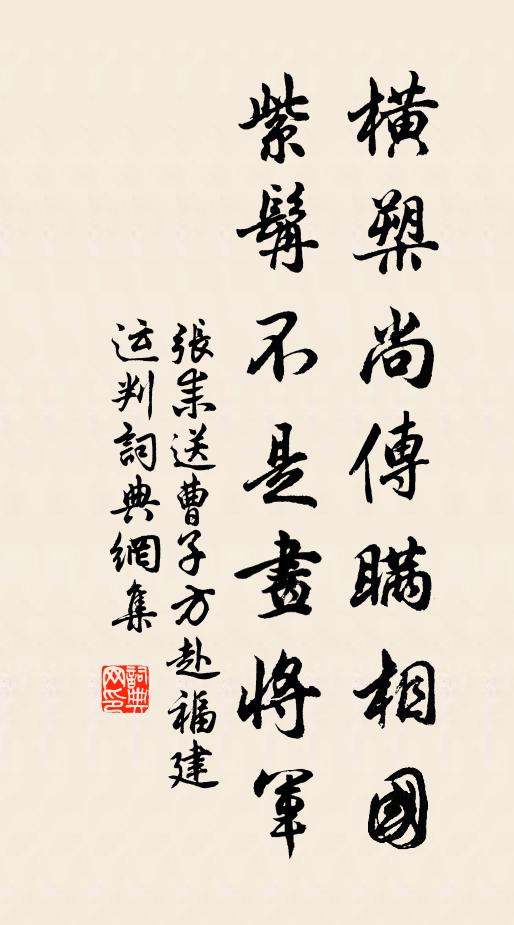 橫槊尚傳瞞相國
紫髯不是畫將軍
張耒送曹子方赴福建
运判詞典網集
詞典
网印